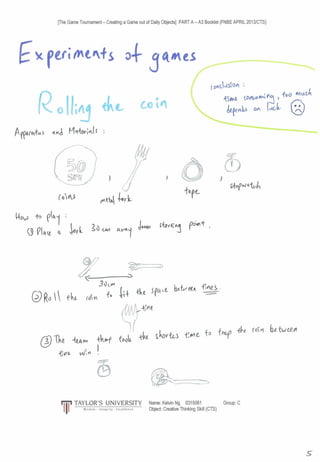 [The Game Tournament – Creating a Game out of Daily Objects] PART A – A3 Booklet (PNBE APRIL 2013/CTS)
Experiments of games
conclusion :
time consuming, too much
depends on luck
Rolling the coin
Apparatus and Materials :
50
SEN
,
,
,
coins
metal fork
tape
stopwatch
How to play :
① Place a fork 30 cm away from starting point.
30cm
② Roll the coin to fit the space between tines.
tine
③ The team that took the shortes time to trap the coin between
tine win!
TAYLOR'S UNIVERSITY
Wisdom · Integrity · Excellence
Name: Kelvin Ng 0315081
Group: C
Object: Creative Thinking Skill (CTS)
5